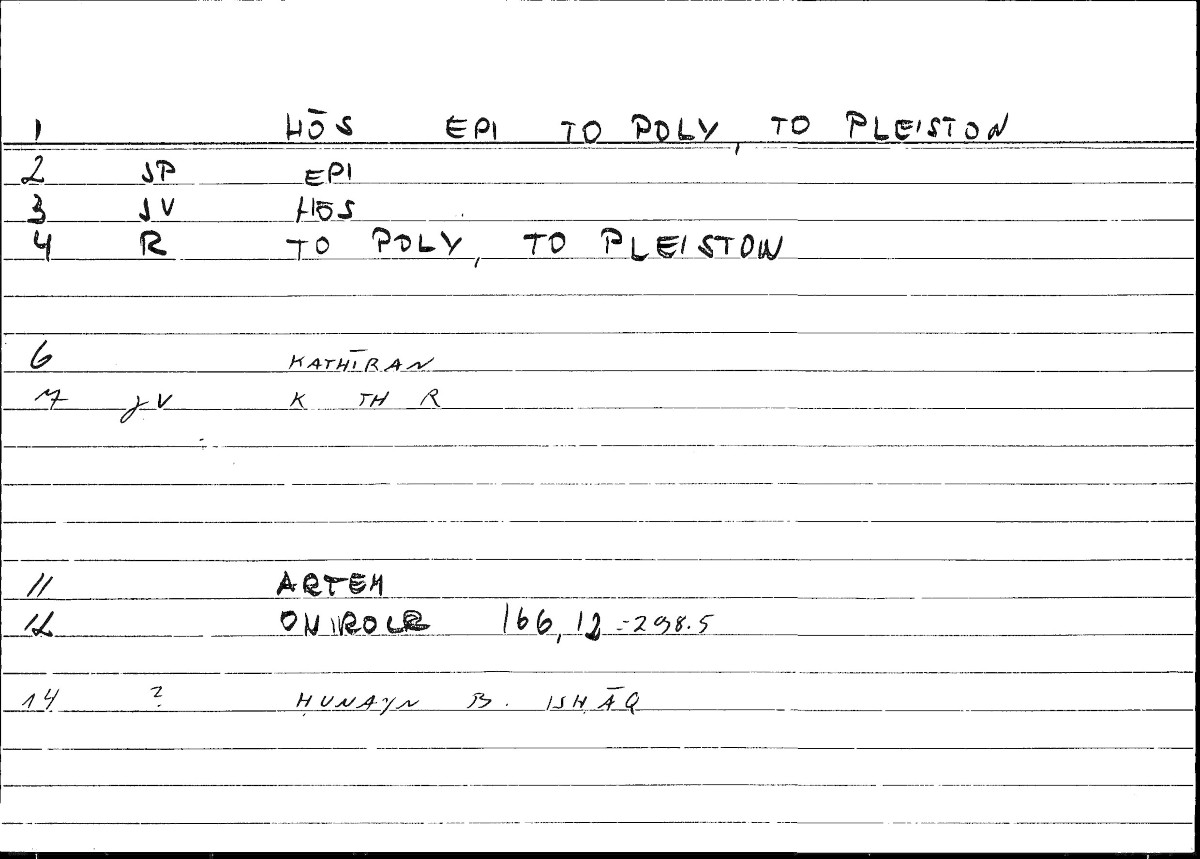 1 HŌS EPI TO POLY, TO PLEISTON
2 SP EPI
3 SV HŌS
4 R TO POLY, TO PLEISTON
6 KATHĪRAN
7 JV K TH R
11 ARTEM
12 ONIROCR 166,12 = 298.5
14 ? ḤUNAYN B. ISḤĀQ